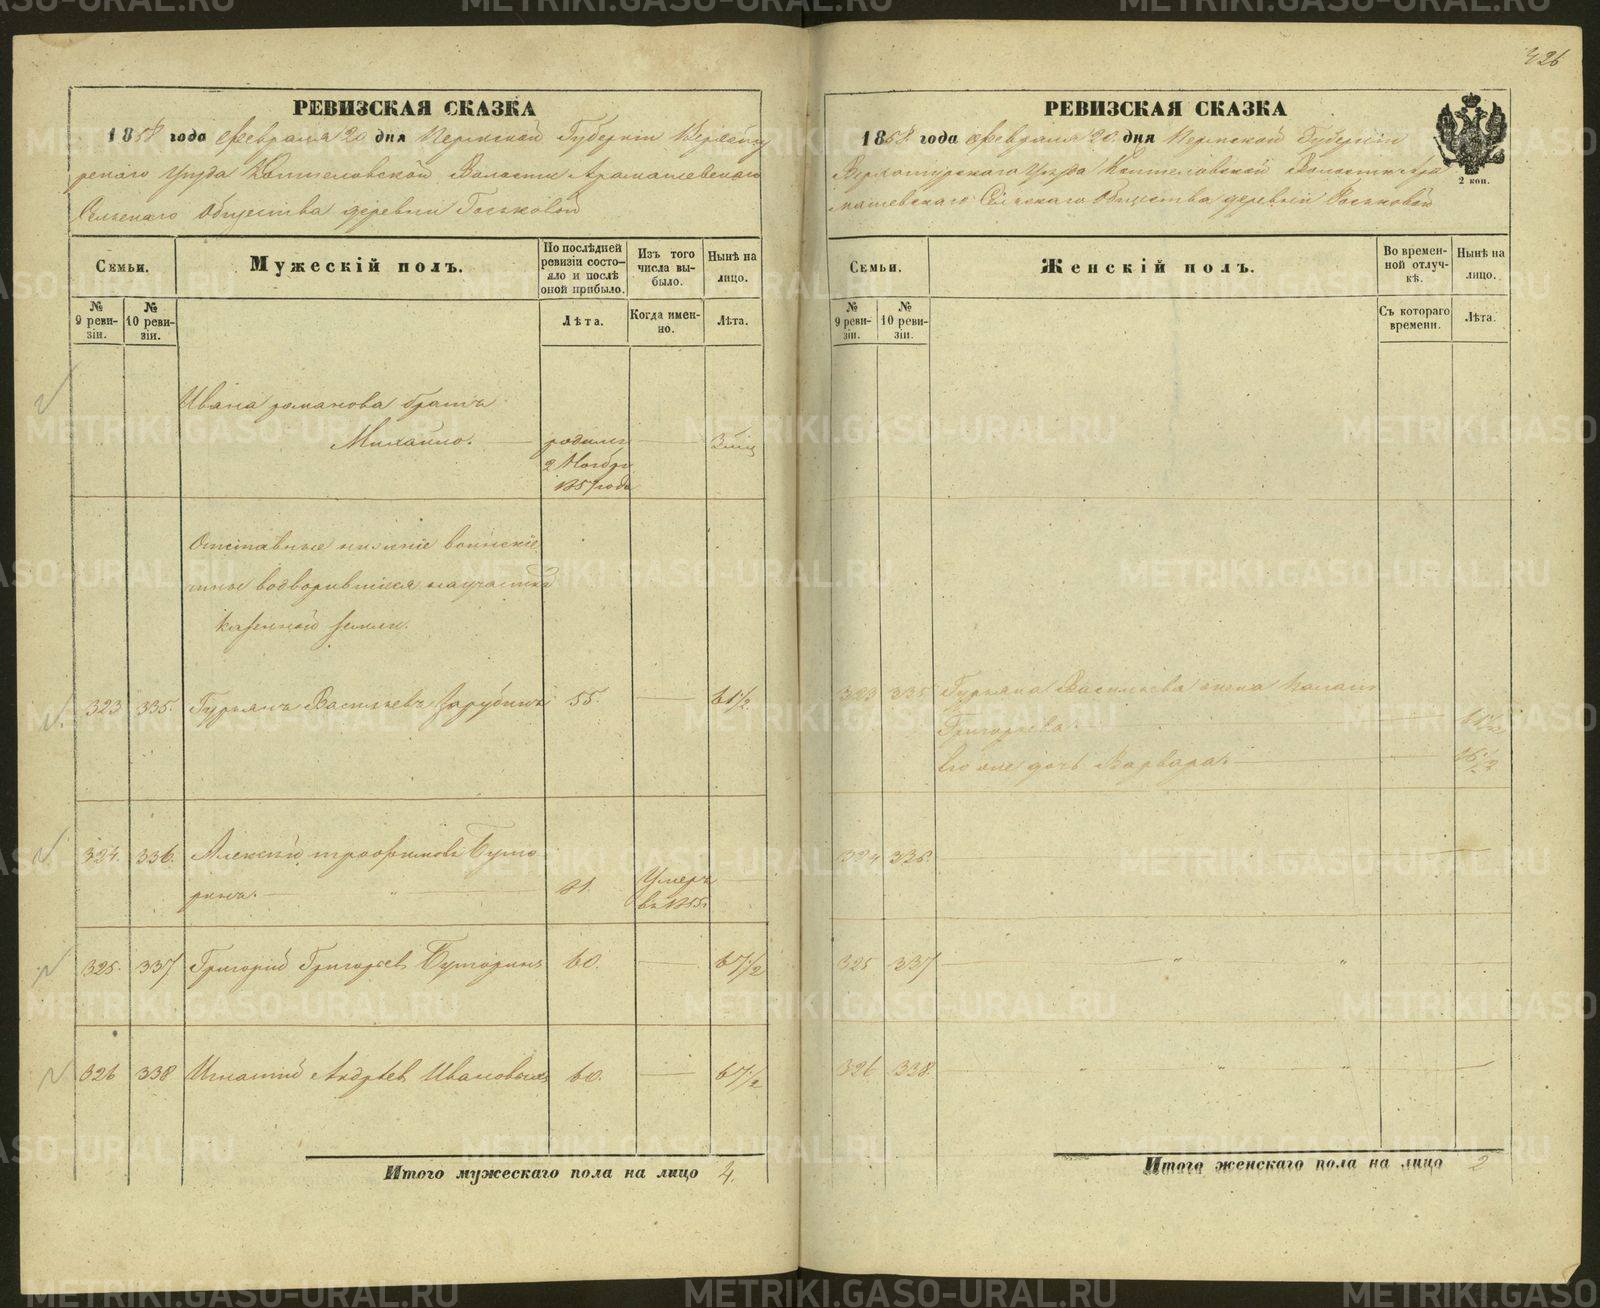 426
РЕВИЗСКАЯ СКАЗКА
1858 года Февраля 20 дня Пермской Губерніи Верхоту
рскаго Уезда Коптеловской Волости Арамашевскаго
Сельскаго Общества деревни Гостьковой
Семьи.
Мужескій полъ.
По послѣдней ревизіи состояло и послѣ оной прибыло.
Изъ того числа выбыло.
Нынѣ на лицо.
№ 9 ревизіи.
№ 10 ревизіи.
Лѣта.
Когда именно.
Лѣта.
Ивана романова братъ
Михаило. родился 2 Ноября 1857 года 3 мѣс
Отставные нижніе воинскіе
чины водворившіеся на участкѣ
казенной земли.
323 335. Гурьянъ Васильевъ Зарубинъ 55. 61 1/2
324. 336. Алексѣй трофимовъ Буто
ринъ. Умеръ въ 1855.
325. 337 Григорій Григорьев Буторинъ 60. 67 1/2
326 338 Игнатій Андрѣев Ивановыхъ 60. 67 1/2
Итого мужескаго пола на лицо 4.
РЕВИЗСКАЯ СКАЗКА
1858 года Февраля 20 дня Пермской Губерніи
Верхотурскаго Уезда Коптеловской Волости Ара
машевскаго Сельскаго Общества деревни Гостьковой
2 коп.
Семьи.
Женскій полъ.
Во временной отлучкѣ.
Нынѣ на лицо.
№ 9 ревизіи.
№ 10 ревизіи.
Съ котораго времени.
Лѣта.
323 335 Гурьяна Васильева жена
Григорьева
Его же дочь Варвара.
324 336.
325 337
326 338.
Итого женскаго пола на лицо 2
METRIKI.GASO-URAL.RU